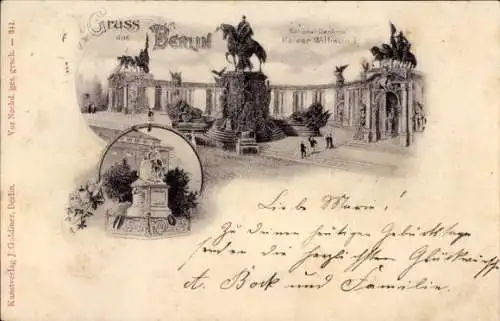 Gruss
aus
Berlin
National-Denkmal
Kaiser Wilhelm I.
Vor Nachd. ges. gesch. — 341.
Kunstverlag J. Goldiner, Berlin.
Liebe Marie!
Zu deinem heutigen Geburtstage
senden die herzlichsten Glückwünsche
A. Bock und Familie.